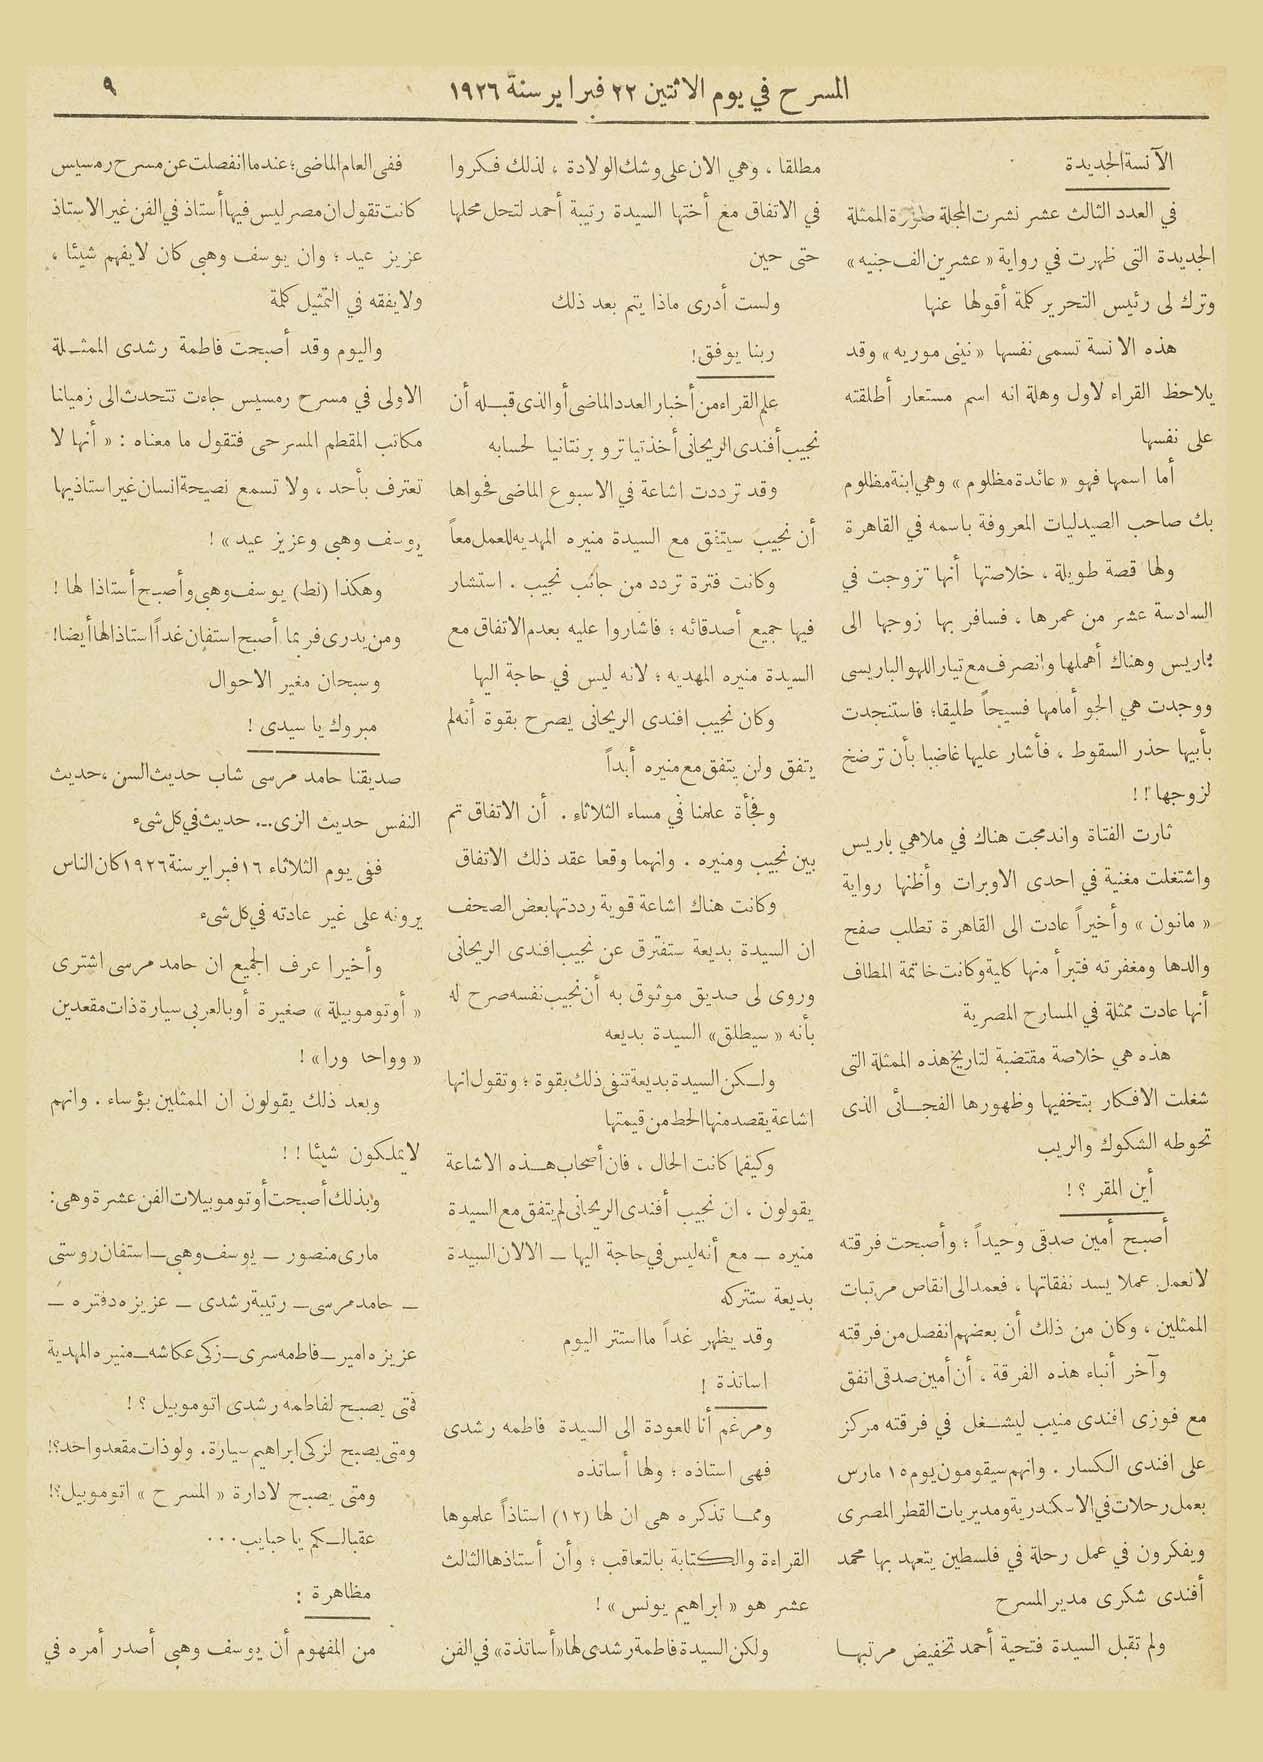 المسرح في يوم الاثنين ٢٢ فبراير سنة ١٩٢٦
٩
الآنسة الجديدة
في العدد الثالث عشر نشرت المجلة صورة الممثلة
الجديدة التى ظهرت في رواية « عشرين الف جنيه »
وترك لى رئيس التحرير كلمة أقولها عنها
هذه الانسة تسمى نفسها « نينى موريه » وقد
يلاحظ القراء لاول وهلة انه اسم مستعار أطلقته
على نفسها
أما اسمها فهو « عائدة مظلوم » وهي ابنة مظلوم
بك صاحب الصيدليات المعروفة باسمه في القاهرة
ولها قصة طويلة ، خلاصتها أنها تزوجت في
السادسة عشر من عمرها ، فسافر بها زوجها الى
باريس وهناك أهملها وانصرف مع تيار اللهو الباريسى
ووجدت هي الجو أمامها فسيحاً طليقا؛ فاستنجدت
بأبيها حذر السقوط ، فأشار عليها غاضبا بأن ترضخ
لزوجها ! !
ثارت الفتاة واندمجت هناك في ملاهي باريس
واشتغلت مغنية في احدى الاوبرات وأظنها رواية
« مانون » وأخيراً عادت الى القاهرة تطلب صفح
والدها ومغفرته فتبرأ منها كلية وكانت خاتمة المطاف
أنها عادت ممثلة في المسارح المصرية
هذه هي خلاصة مقتضبة لتاريخ هذه الممثلة التى
شغلت الافكار بتخفيها وظهورها الفجـائى الذى
تحوطه الشكوك والريب
أين المقر ؟ !
أصبح أمين صدقى وحيداً ؛ وأصبحت فرقته
لا تعمل عملا يسد نفقاتها ، فعمد الى انقاص مرتبات
الممثلين ، وكان من ذلك أن بعضهم انفصل من فرقته
وآخر أنباء هذه الفرقة ، أن أمين صدقى اتفق
مع فوزى افندى منيب ليشـغل في فرقته مركز
على افندى الكسار . وانهم سيقومون يوم ١٥ مارس
بعمل رحلات في الاسكندرية ومديريات القطر المصرى
ويفكرون في عمل رحلة في فلسطين يتعهد بها محمد
أفندى شكرى مدير المسرح
ولم تقبل السيدة فتحية أحمد تخفيض مرتبهـا
مطلقا ، وهي الان على وشك الولادة ، لذلك فكروا
في الاتفاق مع أختها السيدة رتيبة أحمد لتحل محلها
حتى حين
ولست أدرى ماذا يتم بعد ذلك
ربنا يوفق!
علم القراء من أخبار العدد الماضى أو الذى قبـله أن
نجيب أفندى الريحانى أخذ تياترو برنتانيا لحسابه
وقد ترددت اشاعة في الاسبوع الماضى فحواها
أن نجيب سيتفق مع السيدة منيره المهديه للعمل معاً
وكانت فترة تردد من جانب نجيب . استشار
فيها جميع أصدقائه ؛ فاشاروا عليه بعدم الاتفاق مع
السيدة منيره المهديه ؛ لانه ليس في حاجة اليها
وكان نجيب افندى الريحانى يصرح بقوة أنه لم
يتفق ولن يتفق مع منيره أبداً
وفجأة علمنا في مساء الثلاثاء . أن الاتفاق تم
بين نجيب ومنيره . وانهما وقعا عقد ذلك الاتفاق
وكانت هناك اشاعة قوية رددتها بعض الصحف
ان السيدة بديعة ستفترق عن نجيب افندى الريحانى
وروى لى صديق موثوق به أن نجيب نفسه صرح له
بأنه « سيطلق » السيدة بديعه
ولـكن السيدة بديعة تنفى ذلك بقوة ؛ وتقول انها
اشاعة يقصد منها الحط من قيمتها
وكيفما كانت الحال ، فان أصحاب هـذه الاشاعة
يقولون ، ان نجيب أفندى الريحانى لم يتفق مع السيدة
منيره — مع أنه ليس في حاجة اليها — الا لان السيدة
بديعة ستتركه
وقد يظهر غداً ما استتر اليوم
اساتذة !
ومرغم أنا للعودة الى السيدة فاطمه رشدى
فهى استاذه ؛ ولها أساتذه
وممـا تذكره هى ان لها (١٢) استاذاً علموها
القراءة والكتابة بالتعاقب ؛ وأن أستاذها الثالث
عشر هو « ابراهيم يونس » !
ولكن السيدة فاطمة رشدى لها « أساتذة » في الفن
ففى العام الماضى ؛ عندما انفصلت عن مسرح رمسيس
كانت تقول ان مصر ليس فيها أستاذ في الفن غير الاستاذ
عزيز عيد ؛ وان يوسف وهبى كان لا يفهم شيئا ،
ولا يفقه في التمثيل كلمة
واليوم وقد أصبحت فاطمة رشدى الممثـلة
الاولى في مسرح رمسيس جاءت تتحدث الى زميلنا
مكاتب المقطم المسرحى فتقول ما معناه : « أنها لا
تعترف بأحد ، ولا تسمع نصيحة انسان غير استاذيها
يوسف وهبى وعزيز عيد » !
وهكذا (نط) يوسف وهبى وأصبح أستاذا لها !
ومن يدرى فربما أصبح استفان غداً استاذا لها أيضا!
وسبحان مغير الاحوال
مبروك يا سيدى !
صديقنا حامد مرسى شاب حديث السن ، حديث
النفس حديث الزى ... حديث في كل شىء
ففى يوم الثلاثاء ١٦ فبراير سنة ١٩٢٦ كان الناس
يرونه على غير عادته في كل شىء
وأخيرا عرف الجميع ان حامد مرسى اشترى
« أوتوموبيلة » صغيرة أو بالعربى سيارة ذات مقعدين
« وواحد ورا » !
وبعد ذلك يقولون ان الممثلين بؤساء . وانهم
لا يملكون شيئا ! !
وبذلك أصبحت أوتوموبيلات الفن عشرة وهى:
مارى منصور — يوسف وهبى — استفان روستى
— حامد مرسى — رتيبة رشدى — عزيزه دفتره —
عزيزه امير — فاطمه سرى — زكى عكاشه — منيره المهدية
فمتى يصبح لفاطمه رشدى اتوموبيل ؟ !
ومتى يصبح لزكى ابراهيم سيارة . ولو ذات مقعد واحد؟!
ومتى يصبح لادارة « المسرح » اتوموبيل؟!
عقبالـكم يا حبايب ...
مظاهرة :
من المفهوم أن يوسف وهبى أصدر أمره في